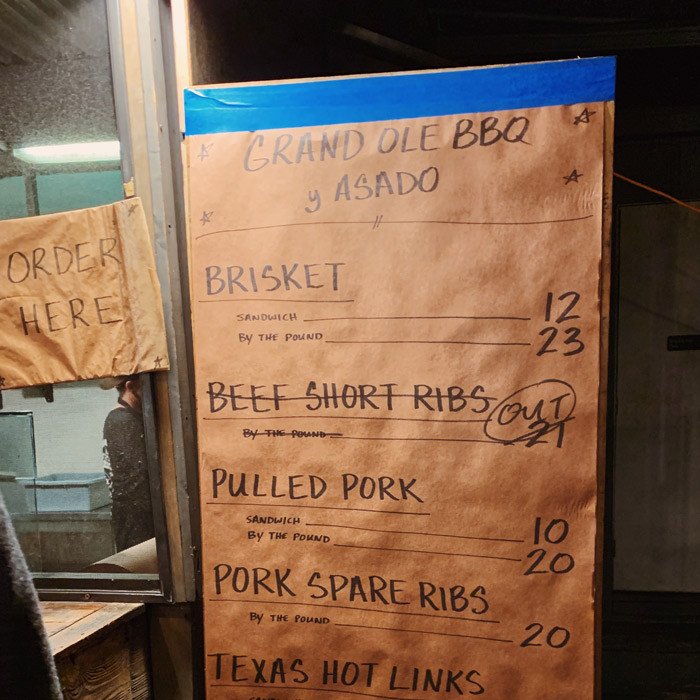 GRAND OLE BBQ
y ASADO
ORDER
HERE
BRISKET
SANDWICH 12
BY THE POUND 23
BEEF SHORT RIBS OUT
BY THE POUND 21
PULLED PORK
SANDWICH 10
BY THE POUND 20
PORK SPARE RIBS
BY THE POUND 20
TEXAS HOT LINKS